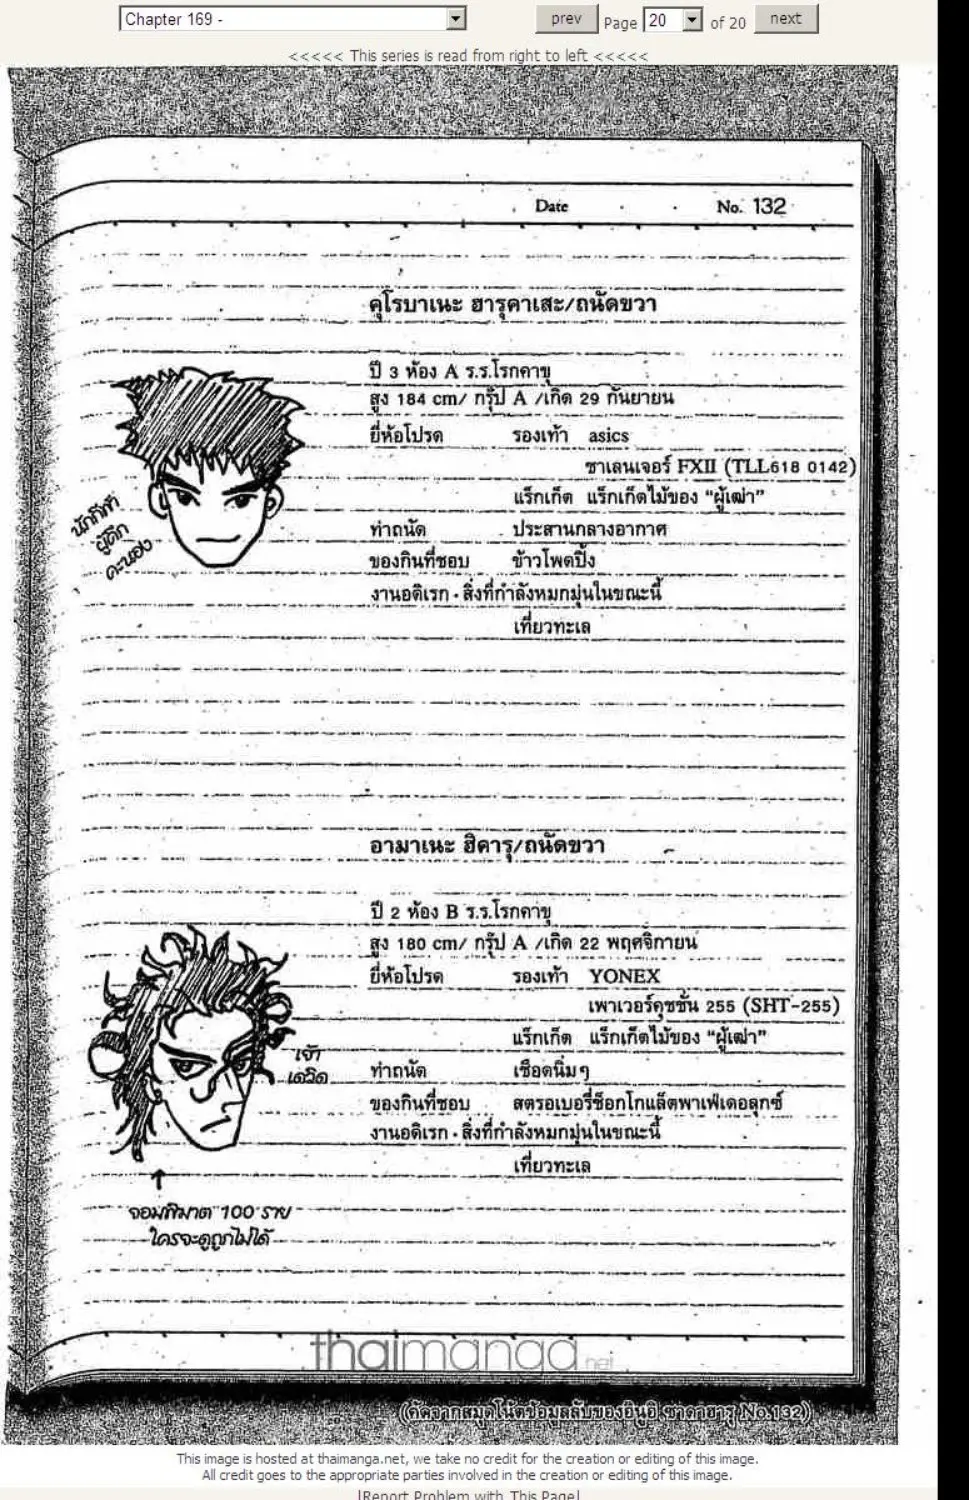 Chapter 169 -
prev Page 20 of 20 next
<<<<< This series is read from right to left <<<<<
Date No. 132
คุโรบาเนะ ฮารุคาเสะ/ถนัดขวา
ปี 3 ห้อง A ร.ร.โรกคาขุ
สูง 184 cm/ กรุ๊ป A /เกิด 29 กันยายน
ยี่ห้อโปรด รองเท้า asics
ชาเลนเจอร์ FXII (TLL618 0142)
แร็กเก็ต แร็กเก็ตไม้ของ "ผู้เฒ่า"
ท่าถนัด ประสานกลางอากาศ
ของกินที่ชอบ ข้าวโพดปิ้ง
งานอดิเรก · สิ่งที่กำลังหมกมุ่นในขณะนี้
เที่ยวทะเล
นักกีฬา
ผู้คึก
คะนอง
อามาเนะ ฮิคารุ/ถนัดขวา
ปี 2 ห้อง B ร.ร.โรกคาขุ
สูง 180 cm/ กรุ๊ป A /เกิด 22 พฤศจิกายน
ยี่ห้อโปรด รองเท้า YONEX
เพาเวอร์คุชชั่น 255 (SHT-255)
แร็กเก็ต แร็กเก็ตไม้ของ "ผู้เฒ่า"
ท่าถนัด เชือดนิ่มๆ
ของกินที่ชอบ สตรอเบอรี่ช็อกโกแล็ตพาเฟ่เดอลุกซ์
งานอดิเรก · สิ่งที่กำลังหมกมุ่นในขณะนี้
เที่ยวทะเล
เจ้า
เดวิด
จอมพิฆาต 100 ราย
ใครจะดูถูกไม่ได้
thaimanga.net
(คัดจากสมุดโน้ตข้อมูลลับของอินุอิ ซาดาฮารุ No.132)
This image is hosted at thaimanga.net, we take no credit for the creation or editing of this image.
All credit goes to the appropriate parties involved in the creation or editing of this image.
[Report Problem with This Page]